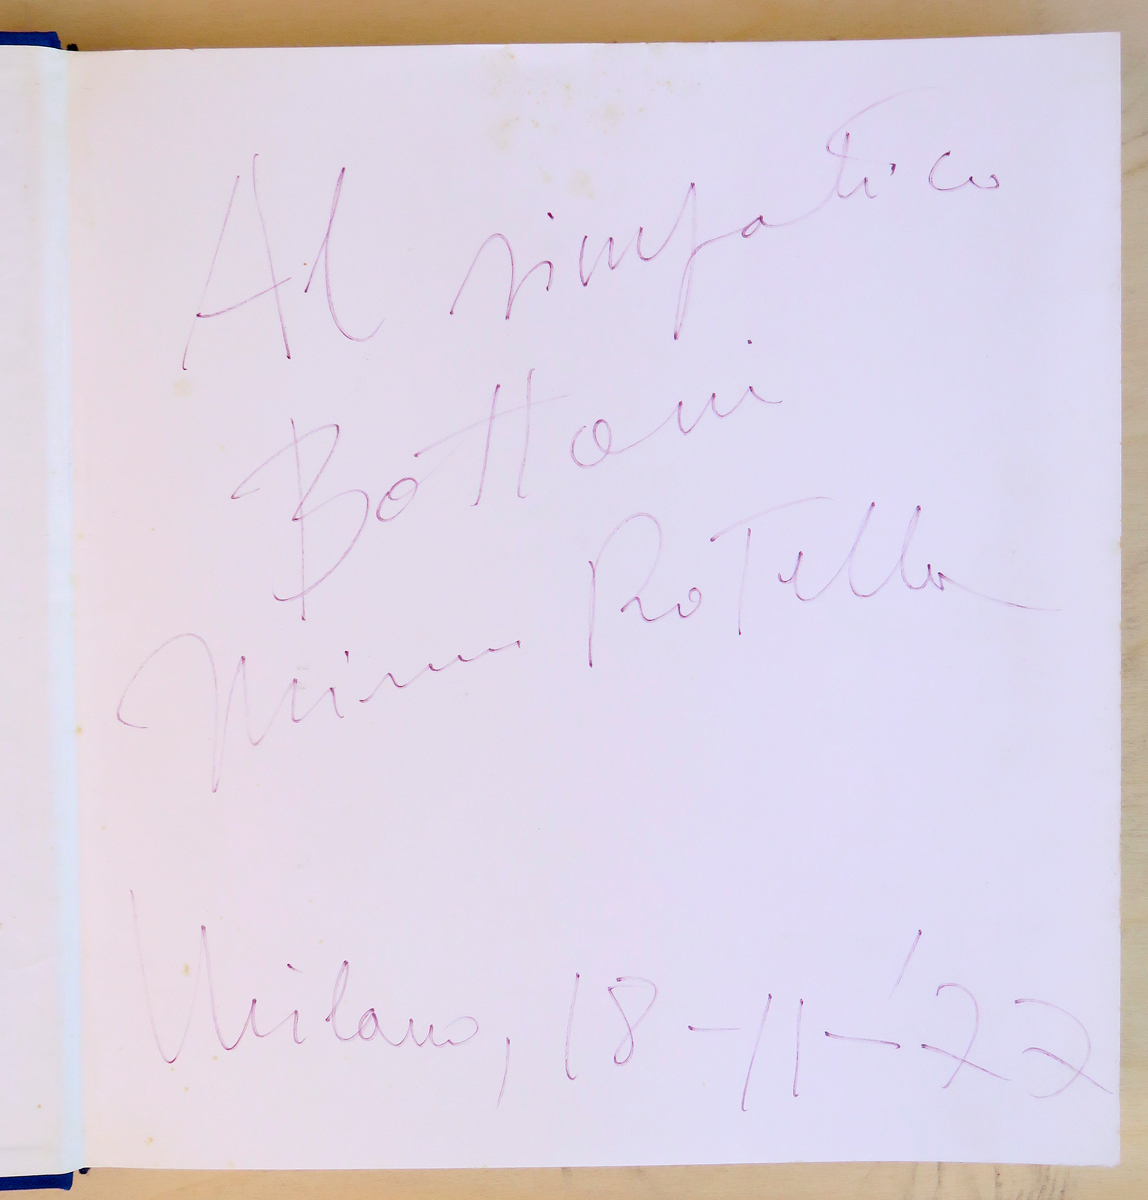 Al simpatico
Bottoni
Mimmo Rotella
Milano, 18-11-'77